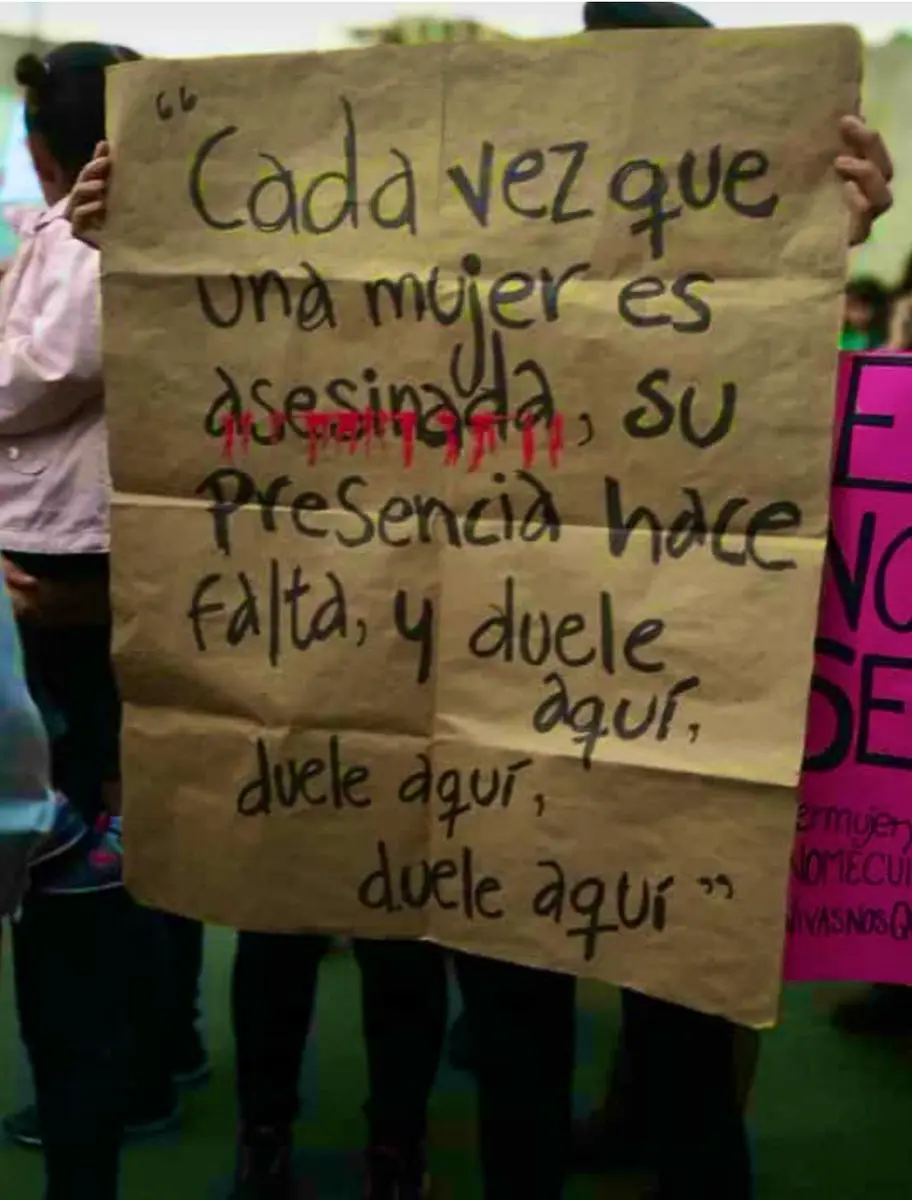 “Cada vez que
una mujer es
asesinada, su
presencia hace
falta, y duele
aquí,
duele aquí,
duele aquí”
E
NO
SE